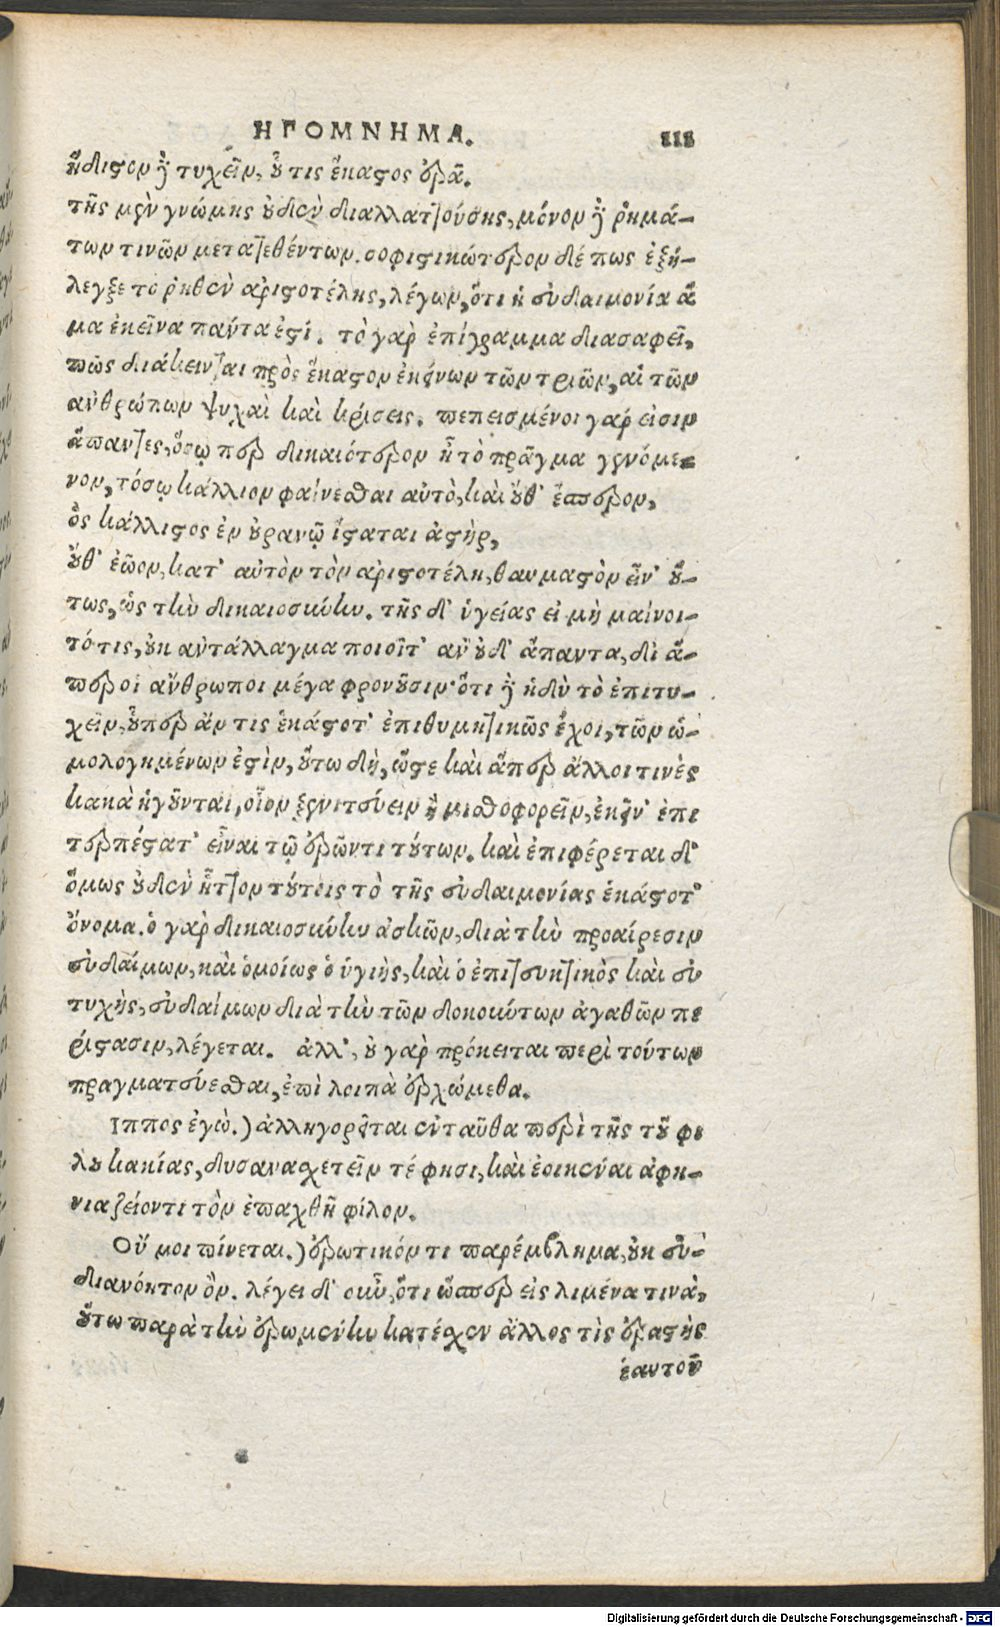 ΗΓΟΜΝΗΜΑ. 111
ἥδιστον δὲ τυχεῖν, οὗ τις ἕκαστος ἐρᾷ.
τῆς μὲν γνώμης οὐδὲν διαλλαττούσης, μόνον δὲ ῥημά-
των τινῶν μετατεθέντων. σοφιστικώτερον δέ πως ἐξή-
λεγξε το ῥηθὲν ἀριστοτέλης, λέγων, ὅτι ἡ εὐδαιμονία ἅ
μα ἐκεῖνα πάντα ἐστί. τὸ γὰρ ἐπίγραμμα διασαφεῖ,
πῶς διάκεινται πρὸς ἕκαστον ἐκείνων τῶν τριῶν, αἱ τῶν
ἀνθρώπων ψυχαὶ καὶ κρίσεις. πεπεισμένοι γάρ εἰσιν
ἅπαντες, ὅσῳ περ δικαιότερον ἦ τὸ πρᾶγμα γενόμε-
νον, τόσῳ κάλλιον φαίνεσθαι αὐτὸ, καὶ οὔθ' ἕσπερον,
ὃς κάλλιστος ἐν οὐρανῷ ἵσταται ἀστὴρ,
οὔθ' ἑῶον, κατ' αὐτὸν τὸν ἀριστοτέλη, θαυμαστὸν εἶν' οὕ-
τως, ὡς τὴν δικαιοσύνην. τῆς δ' ὑγείας εἰ μὴ μαίνοι-
τό τις, οὐκ ἀντάλλαγμα ποιοῖτ' ἂν οὐδ' ἅπαντα, δἰ ἅ-
περ οἱ ἄνθρωποι μέγα φρονοῦσιν· ὅτι δὲ ἡδὺ τὸ ἐπιτυ-
χεῖν, οὗπερ ἄν τις ἑκάστοτ' ἐπιθυμητικῶς ἔχοι, τῶν ὡ-
μολογημένων ἐστὶν, οὕτω δὴ, ὥστε καὶ ἅπερ ἄλλοι τινὲς
κακὰ ἡγοῦνται, οἷον ξενιτεύειν ἢ μισθοφορεῖν, ἐκεῖν' ἐπι
τερπέστατ' εἶναι τῷ ἐρῶντι τούτων. καὶ ἐπιφέρεται δ'
ὅμως οὐδὲν ἧττον τούτοις τὸ τῆς εὐδαιμονίας ἑκάστοτ'
ὄνομα. ὁ γὰρ δικαιοσύνην ἀσκῶν, διὰ τὴν προαίρεσιν
εὐδαίμων, καὶ ὁμοίως ὁ ὑγιὴς, καὶ ὁ ἐπιτευκτικὸς καὶ εὐ
τυχὴς, εὐδαίμων διὰ τὴν τῶν δοκούντων ἀγαθῶν πε
ρίστασιν, λέγεται. ἀλλ', οὐ γὰρ πρόκειται περὶ τούτων
πραγματεύεσθαι, ἐπὶ λοιπὰ ἐρχώμεθα.
Ιππος ἐγὼ.) ἀλληγορεῖται ἐνταῦθα περὶ τῆς τοῦ φί
λου κακίας, δυσανασχετεῖν τέ φησι, καὶ ἐοικέναι ἀφη-
νιαζείοντι τὸν ἐπαχθῆ φίλον.
Οὔ μοι πίνεται.) ἐρωτικόν τι παρέμβλημα, οὐκ εὐ-
διανόητον ὄν. λέγει δ' οὖν, ὅτι ὥσπερ εἰς λιμένα τινὰ,
οὕτω παρὰ τὴν ἐρωμένην κατέσχεν ἄλλος τὶς ἐραστὴς
ἑαυτοῦ
Digitalisierung gefördert durch die Deutsche Forschungsgemeinschaft - DFG